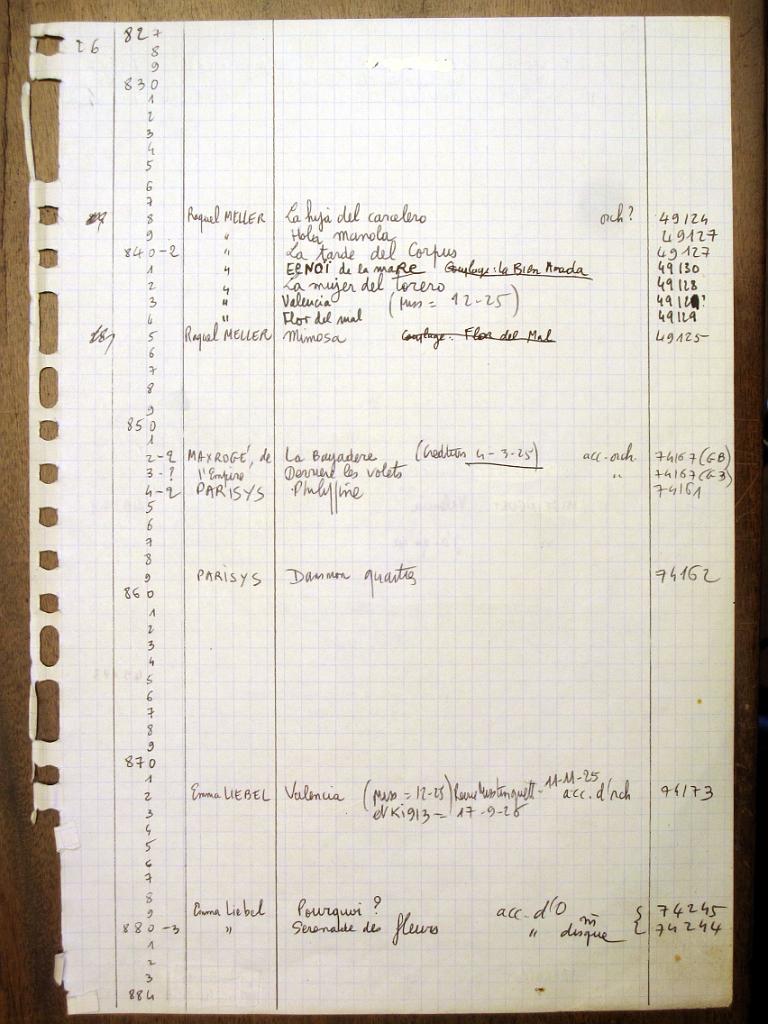 26 827
8
9
830
1
2
3
4
5
6
7
8 Raquel MELLER La hija del carcelero orch? 49124
9 " Hola manola 49127
840-2 " La tarde del Corpus 49127
1 " EL NOÏ de la maRe Couplage: la Bien Amada 49130
2 " La mujer del torero 49128
3 " Valencia (Muss = 12-25)
4 " Flor del mal 49129
5 Raquel MELLER Mimosa Couplage: Flor del Mal 49125
6
7
8
9
850
1
2-2 MAXROGÉ, de La Bayadere (Creditus 4-3-25) acc. orch. 74167 (GB)
3-? l'Empire Derriere les volets " 74167 (GB)
4-2 PARISYS Philippine 74161
5
6
7
8
9 PARISYS Dansmon quartier 74162
860
1
2
3
4
5
6
7
8
9
870
1
2 Emma LIEBEL Valencia (Muss = 12-25) Revue Mistinguett - 11-11-25 acc. d'orch 74173
3 17-9-26
4
5
6
7
8
9 Emma Liebel Pourquoi? acc. d'O 74245
880-3 " Serenade des fleurs " disque 74244
1
2
3
884